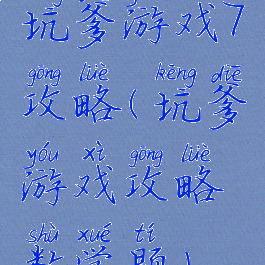 坑爹游戏7
gōng lüè kēng diē
攻略(坑爹
yóu xì gōng lüè
游戏攻略
shù xué tí
数学题)